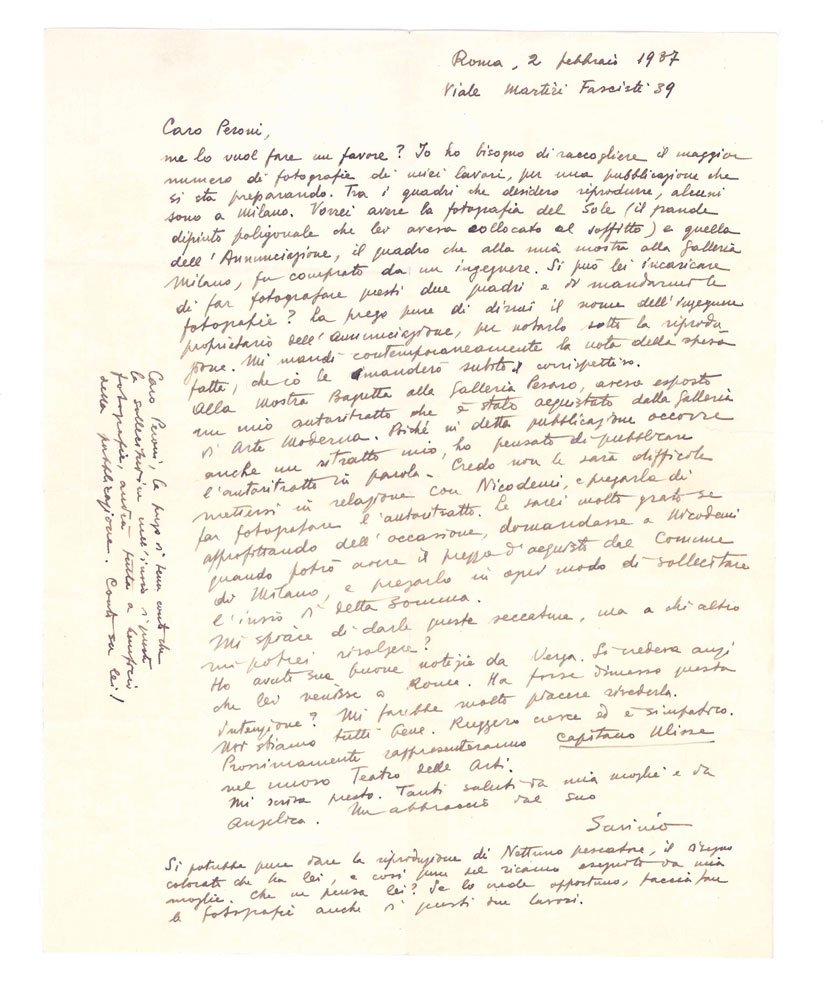 Roma, 2 febbraio 1937
Viale Martiri Fascisti 39
Caro Peroni,
me lo vuol fare un favore? Io ho bisogno di raccogliere il maggior
numero di fotografie dei miei lavori, per una pubblicazione che
si sta preparando. Tra i quadri che desidero riprodurre, alcuni
sono a Milano. Vorrei avere la fotografia del Sole (il grande
dipinto poligonale che lei aveva collocato al soffitto) e quella
dell'Annunciazione, il quadro che alla mia mostra alla Galleria
Milano, fu comprato da un ingegnere. Si può lei incaricare
di far fotografare questi due quadri e di mandarmi le
fotografie? La prego pure di dirmi il nome dell'ingegnere
proprietario dell'Annunciazione, per notarlo sotto la riprodu-
zione. Mi mandi contemporaneamente la nota della spesa
fatta, che io le manderò subito il corrispettivo.
Alla Mostra Bagutta alla Galleria Pesaro, avevo esposto
un mio autoritratto che è stato acquistato dalla Galleria
d'Arte Moderna. Poiché in detta pubblicazione occorre
anche un ritratto mio, ho pensato di pubblicare
l'autoritratto in parola. Credo non le sarà difficile
mettersi in relazione con Nicodemi, e pregarla di
far fotografare l'autoritratto. Le sarei molto grato se
approfittando dell'occasione, domandasse a Nicodemi
quando potrò avere il prezzo d'acquisto dal Comune
di Milano, e pregarlo in ogni modo di sollecitare
l'invio di detta somma.
Mi spiace di darle queste seccature, ma a chi altro
mi potrei rivolgere?
Ho avuto sue buone notizie da Verga. Si credeva anzi
che lei venisse a Roma. Ha forse dimesso questa
intenzione? Mi farebbe molto piacere rivederla.
Noi stiamo tutti bene. Ruggero cresce ed è simpatico.
Prossimamente rappresenteranno Capitano Ulisse
nel nuovo Teatro delle Arti.
Mi scriva presto. Tanti saluti da mia moglie e da
Angelica. Un abbraccio dal suo
Savinio
Si potrebbe pure dare la riproduzione di Nettuno pescatore, il disegno
colorato che ha lei, e così pure del ricamo eseguito da mia
moglie. Che ne pensa lei? Se lo crede opportuno, faccia fare
le fotografie anche di questi due lavori.
Caro Peroni, la prego di tener conto che
la sollecitudine nell'invio di queste
fotografie, andrà tutta a beneficio
della pubblicazione. Conto su lei!